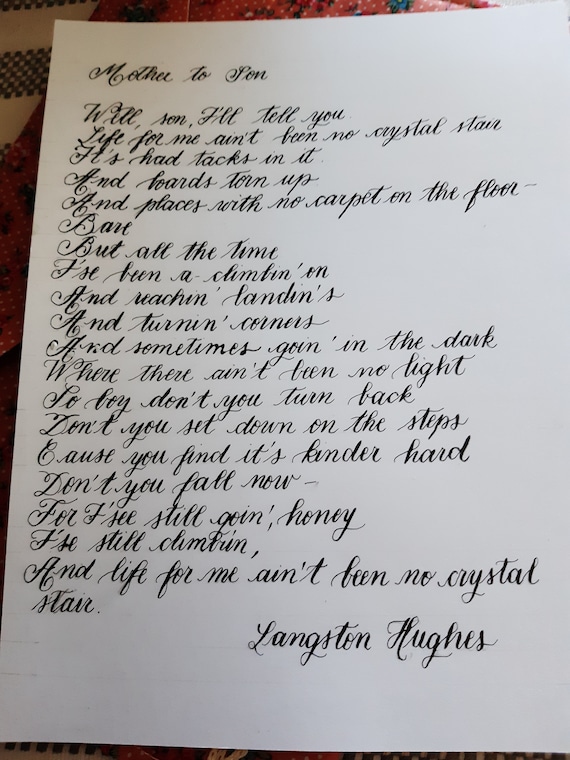 Mother to Son
Well, son, I'll tell you
Life for me ain't been no crystal stair
It's had tacks in it.
And boards torn up.
And places with no carpet on the floor-
Bare
But all the time
I'se been a-climbin' on
And reachin' landin's
And turnin' corners
And sometimes goin' in the dark
Where there ain't been no light
So boy don't you turn back
Don't you set down on the steps
Cause you find it's kinder hard
Don't you fall now-
For I'see still goin', honey
I'se still climbin,
And life for me ain't been no crystal
stair.
Langston Hughes